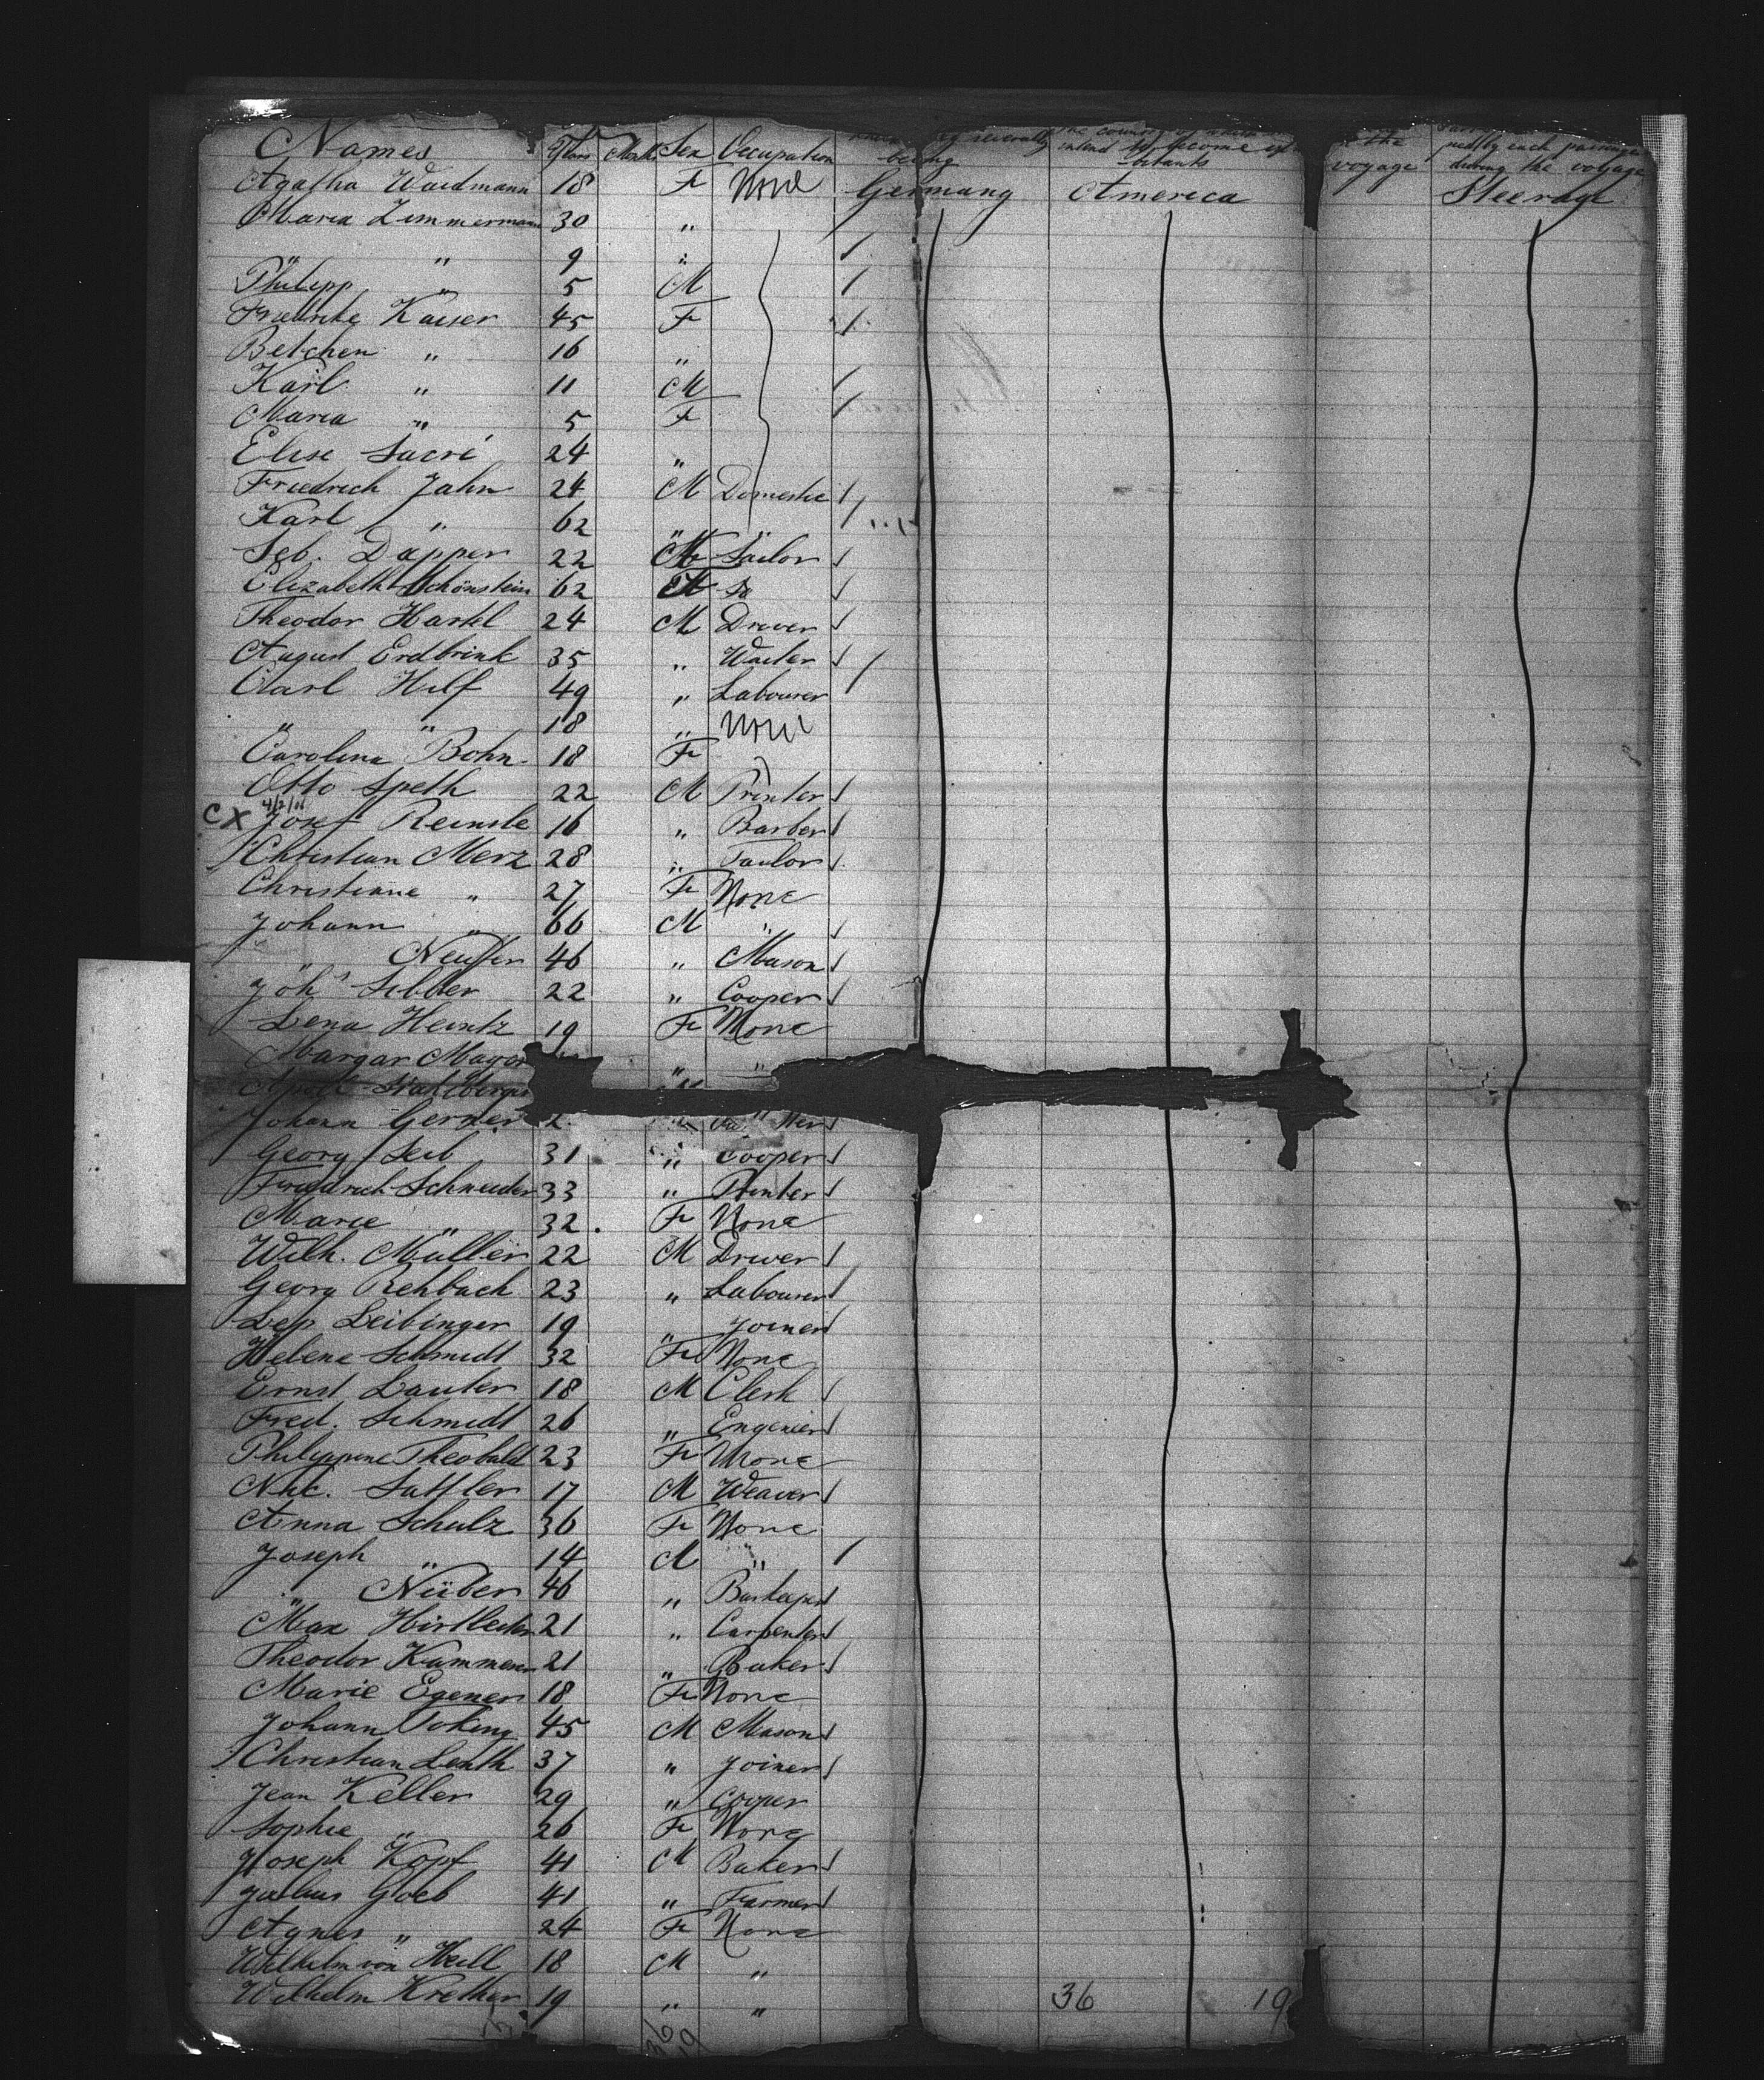 Names Years Month Sex Occupation
Agatha Waidmann 18 F None Germany America Steerage
Maria Zimmermann 30 "
" " 9 "
Philipp " 5 M
Friedrike Kaiser 45 F
Betchen " 16 "
Karl " 11 M
Maria " 5 F
Elise Sacré 24 "
Friedrich Jahn 24 M Domestic
Karl " 62 " "
Seb. Dapper 22 M Sailor
Elizabeth Schönstein 62
Theodor Hartel 24 M Driver
August Erdbrink 35 " Waiter
Carl Hilf 49 " Labourer
" " 18 " None
Carolina Bohn 18 F
Otto Speth 22 M Printer
CX Josef Reinsle 16 " Barber
Christian Merz 28 " Tailor
Christiane " 27 F None
Johann " 66 M "
" 46 " Mason
Joh 22 " Cooper
Lena Heintz 19 F None
Margar Mayer " "
Johann Gerner
Georg Seib 31 " Cooper
Friedrich Schneider 33 " Printer
Marie " 32 F None
Wilh. Müller 22 M Driver
Georg Rehbach 23 " Labourer
Leibinger 19 " Joiner
Helene Schmidt 32 F None
Ernst Lauter 18 M Clerk
Fred. Schmidt 26 " Engenier
Philippine Theobald 23 F None
Nic. Sattler 17 M Weaver
Anna Schulz 36 F None
Joseph " 14 M "
" Nüber 46 " Barkeeper
Max Hirtlecker 21 " Carpenter
Theodor Kammerer 21 " Baker
Marie Egener 18 F None
Johann Toking 45 M Mason
Christian Lenth 37 " Joiner
Jean Keller 29 " Cooper
Sophie " 26 F None
Joseph Kopf 41 M Baker
Julius Goeb 41 " Farmer
Agnes " 24 F None
Wilhelm von Heill 18 M "
Wilhelm Krether 19 " " 36 19